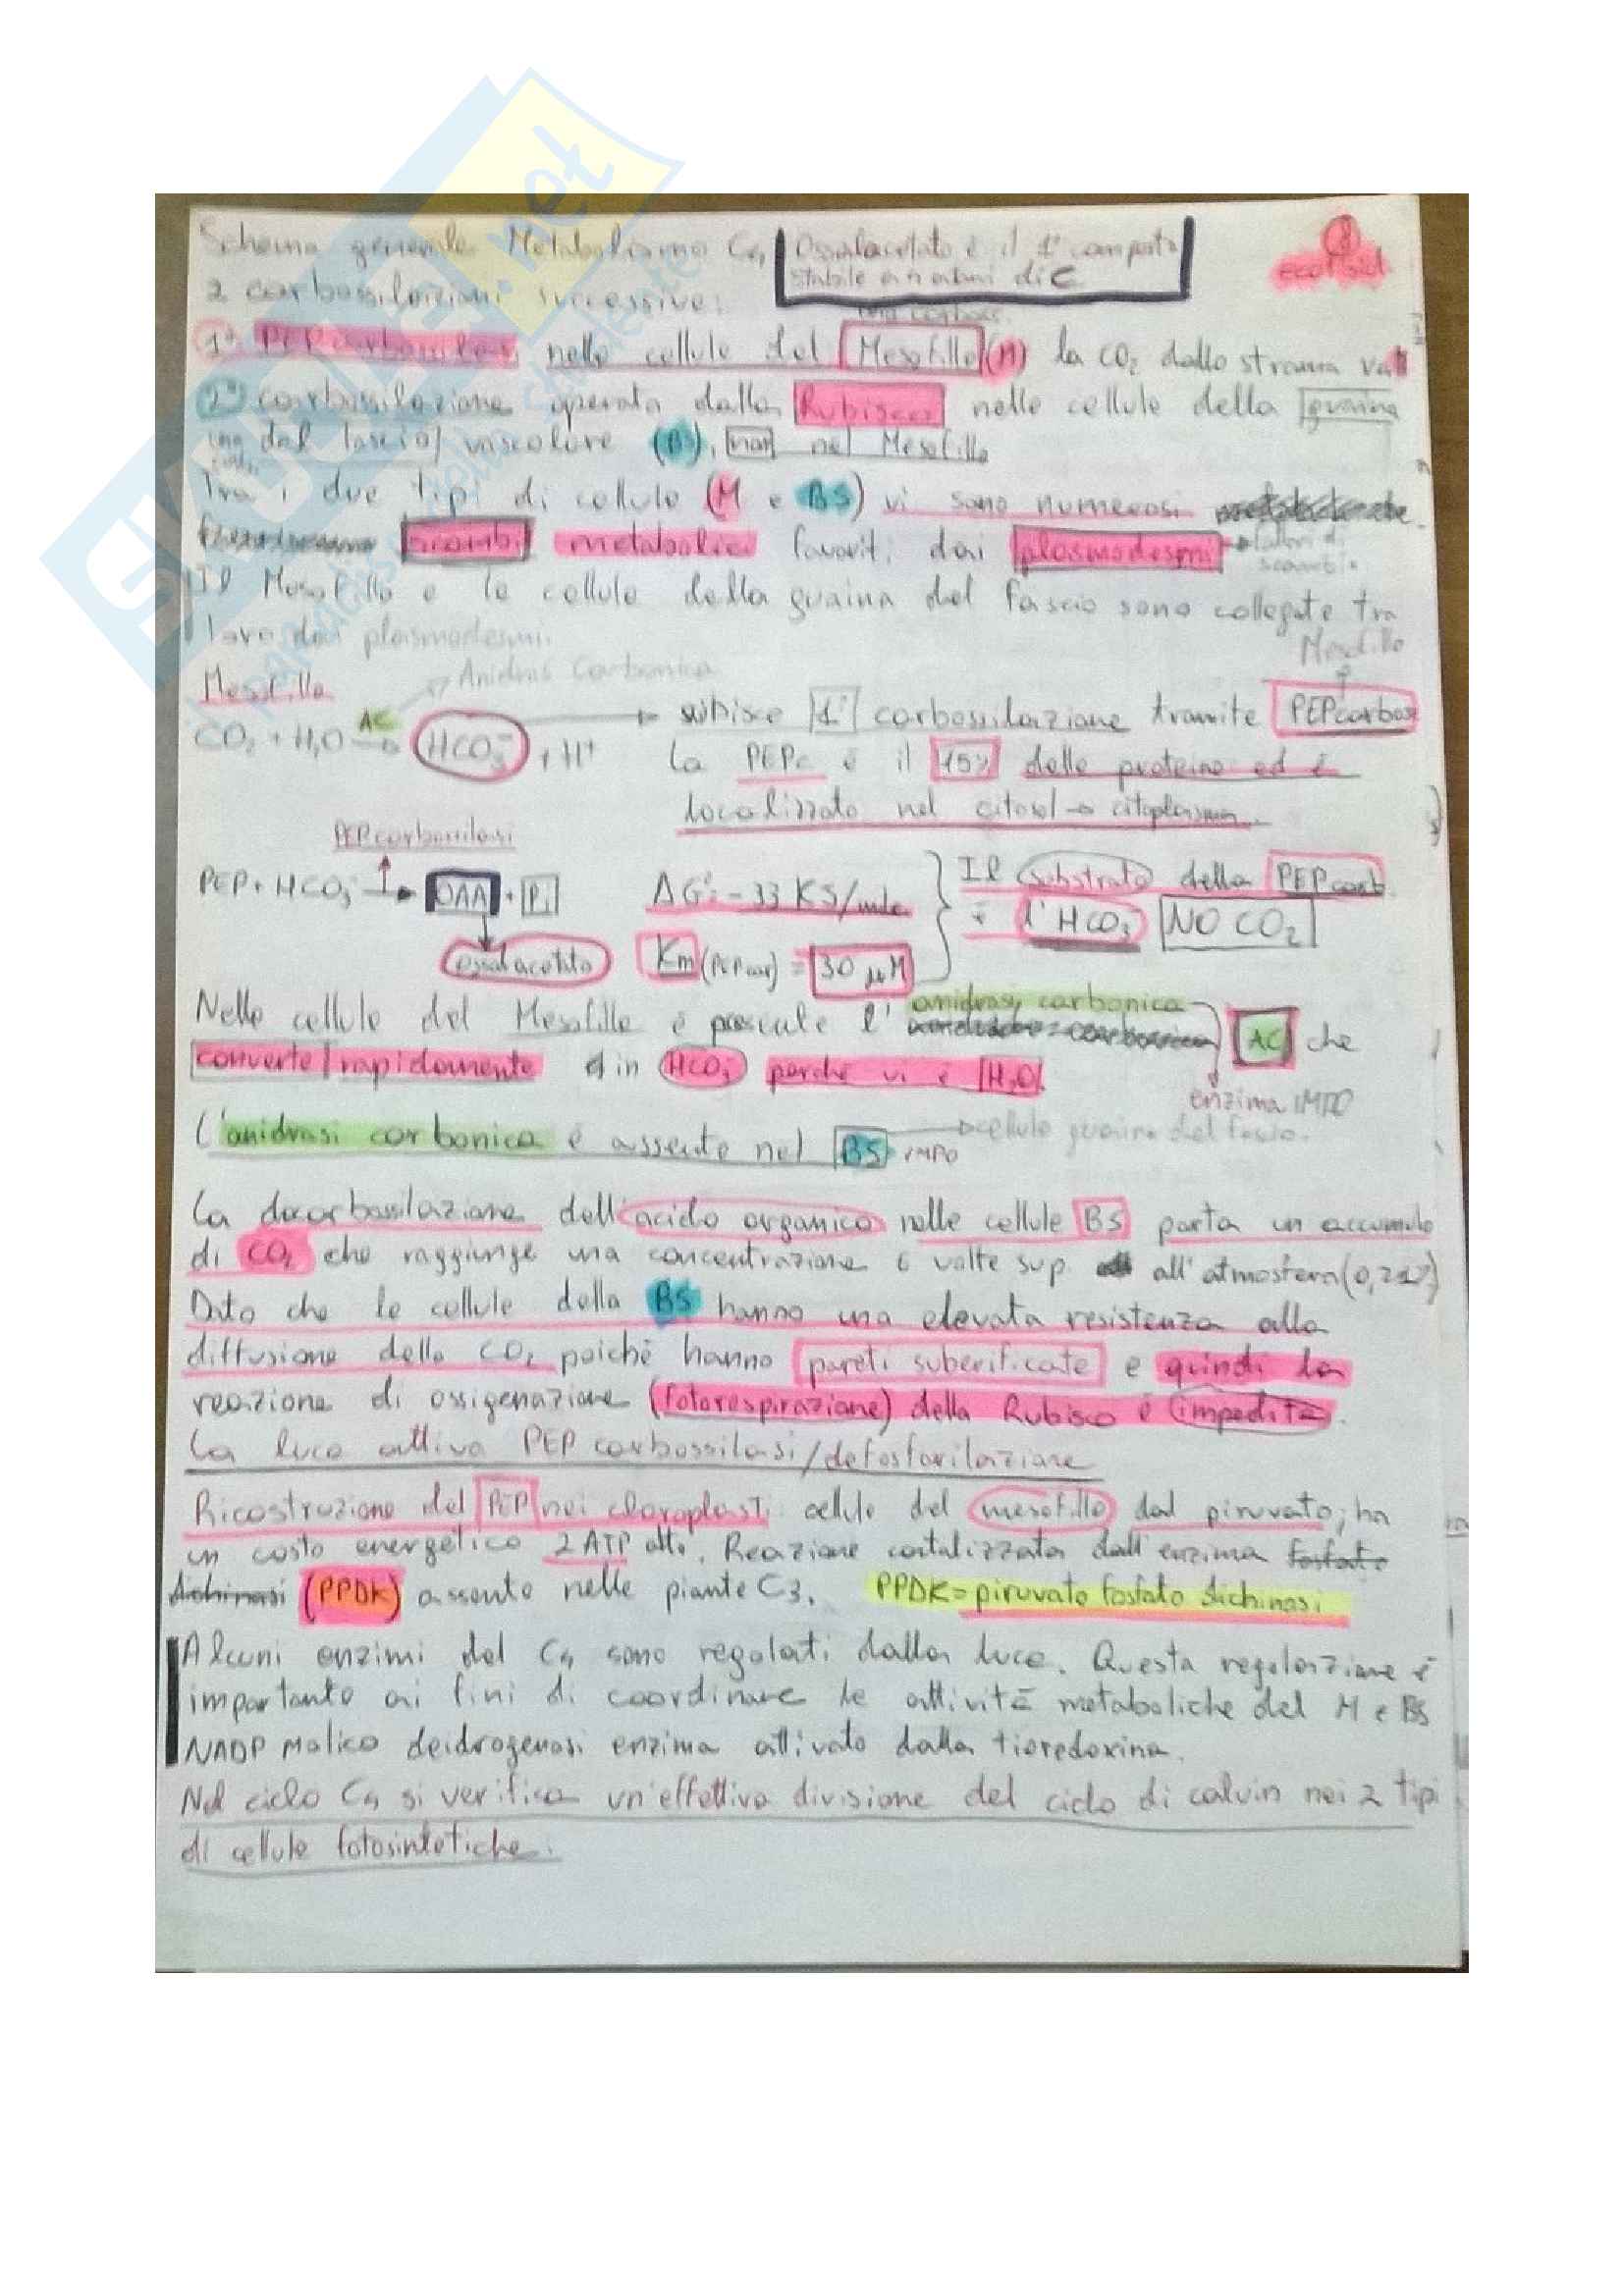 Schema generale Metabolismo C4 Ossalacetato è il 1° composto
stabile a 4 atomi di C
2 carbossilazioni successive:
1° PEPcarbossilasi nelle cellule del Mesofillo (M) la CO2 dallo stroma va
2° carbossilazione operata dalla Rubisco nelle cellule della guaina
del fascio vascolare (BS), non nel Mesofillo
Tra i due tipi di cellule (M e BS) vi sono numerosi
scambi metabolici favoriti dai plasmodesmi
scambi.
Il Mesofillo e le cellule della guaina del fascio sono collegate tra
loro dai plasmodesmi.
Mesofillo
Mesofillo → Anidrasi Carbonica
CO2 + H2O AC → HCO3- + H+ → subisce 1° carbossilazione tramite PEPcarbos
La PEPc è il 15% delle proteine ed è
localizzato nel citosol → citoplasma.
PEPcarbossilasi
PEP + HCO3- → OAA + Pi ΔG: -33 KJ/mole Il substrato della PEPcarb.
è l'HCO3- NO CO2
ossalacetato Km (PEPcar) = 30 µM
Nelle cellule del Mesofillo è presente l' anidrasi carbonica AC che
converte rapidamente in HCO3- perché vi è H2O.
enzima IMPO
L'anidrasi carbonica è assente nel BS → cellule guaina del fascio.
IMPO
La decarbossilazione dell'acido organico nelle cellule BS porta un accumulo
di CO2 che raggiunge una concentrazione 6 volte sup all'atmosfera
Dato che le cellule della BS hanno una elevata resistenza alla
diffusione della CO2 poiché hanno pareti suberificate e quindi la
reazione di ossigenazione (fotorespirazione) della Rubisco è impedita.
La luce attiva PEP carbossilasi/defosforilazione
Ricostruzione del PEP nei cloroplasti cellule del mesofillo dal piruvato; ha
un costo energetico 2 ATP alto. Reazione catalizzata dall'enzima fosfato
dichinasi (PPDK) assente nelle piante C3. PPDK = piruvato fosfato dichinasi
Alcuni enzimi del C4 sono regolati dalla luce. Questa regolazione è
importante ai fini di coordinare le attività metaboliche del M e BS
NADP malico deidrogenasi enzima attivato dalla tioredoxina.
Nel ciclo C4 si verifica un'effettiva divisione del ciclo di calvin nei 2 tipi
di cellule fotosintetiche.